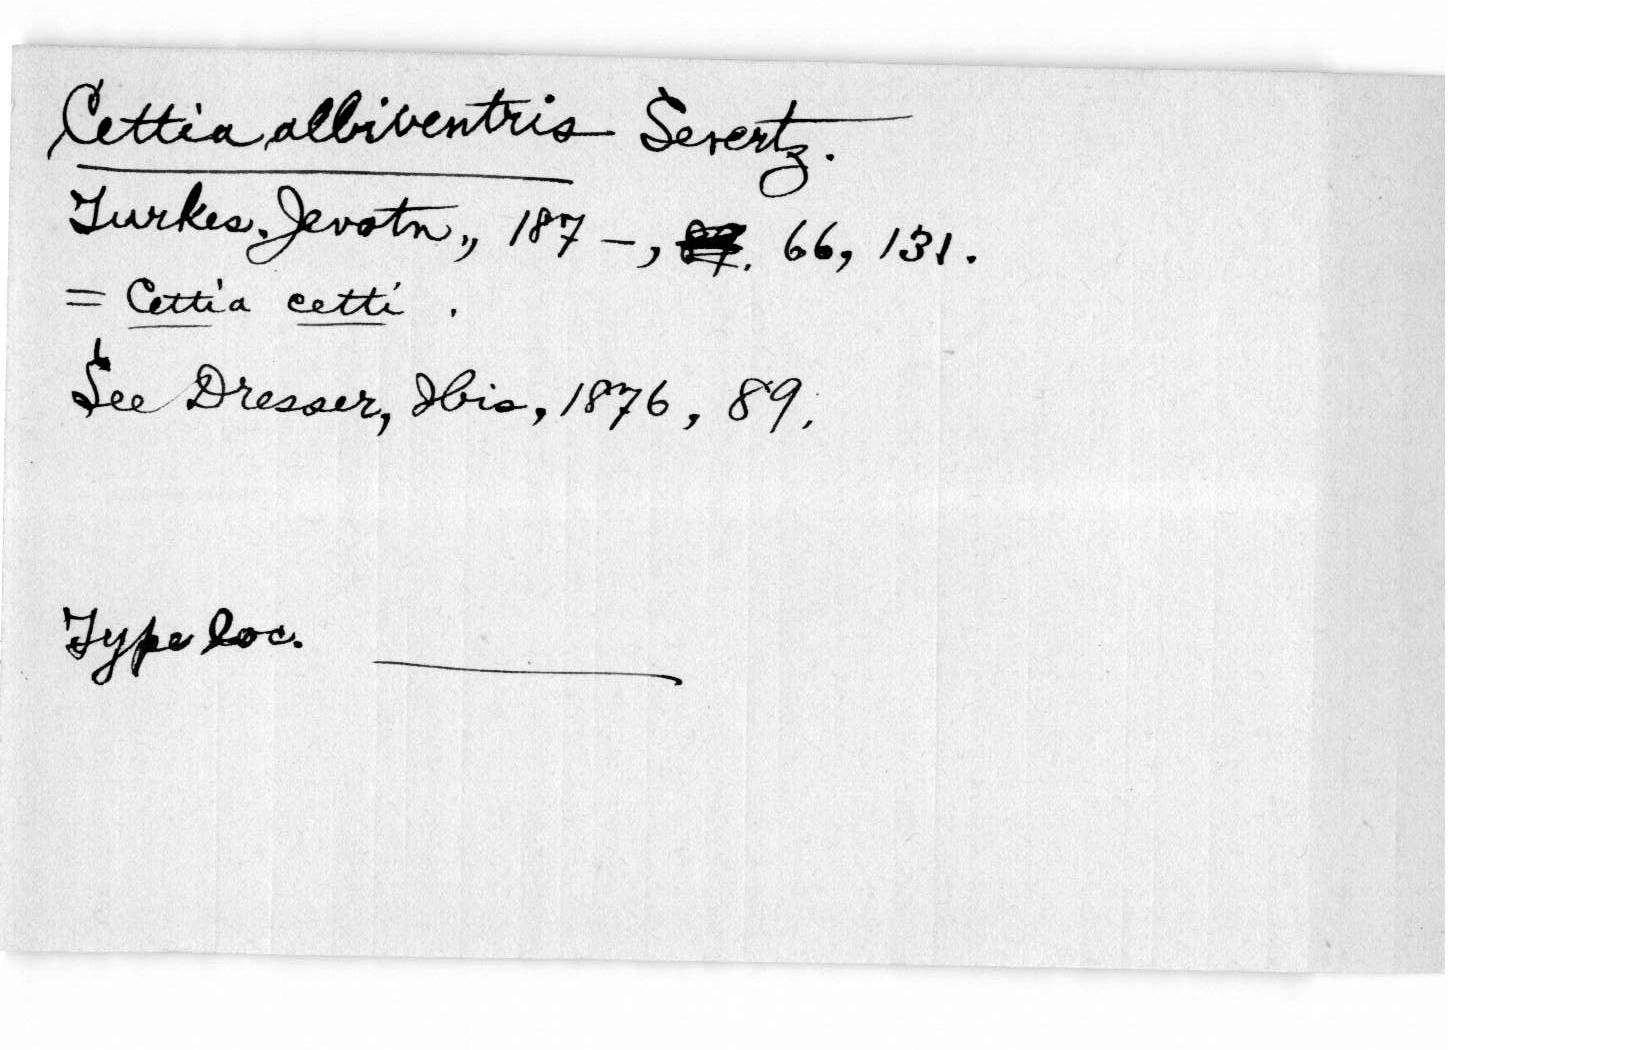 Cettia albiventris Severtz.
Turkes. Jevotn., 187-, 66, 131.
= Cettia cetti.
See Dresser, Ibis, 1876, 89.
Type loc.